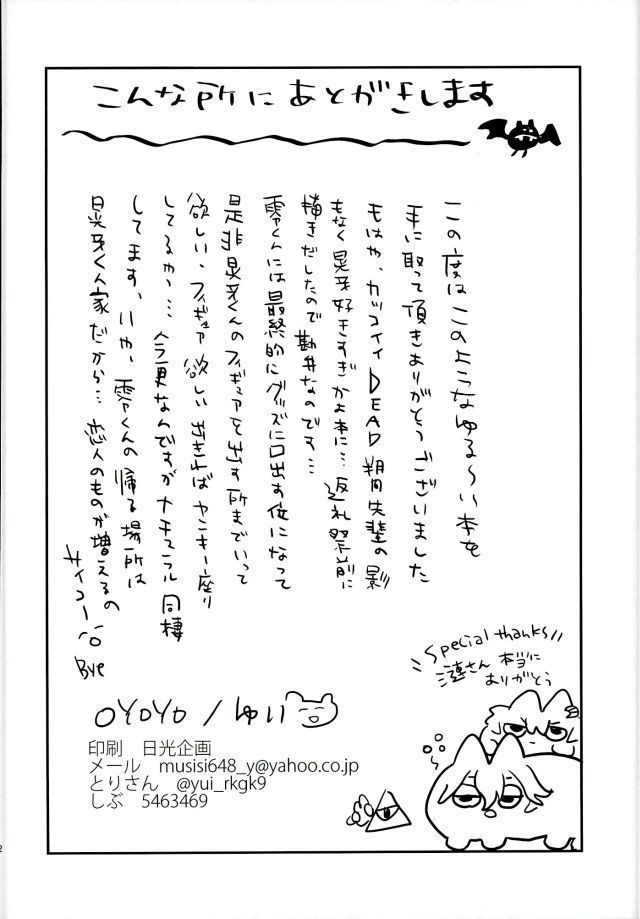 こんな所にあとがきします
この度はこのようなゆる〜い本を
手に取って頂きありがとうございました
もはや、カッコイイDEAD朔間先輩の影
もなく晃牙好きすぎかよ本に…返礼祭前に
描きだしたので勘弁なのです…
零くんには最終的にグッズに口出す位になって
是非晃牙くんのフィギュアを出す所までいって
欲しい、フィギュア欲しい 出きればヤンキー座り
してるやつ…今更なんですがナチュラル同棲
してます、いや、零くんの帰る場所は
晃牙くん家だから…恋人のものが増えるの
サイコー!
Bye
Special thanks!!
さん 本当に
ありがとう
OYOYO / ゆい
印刷 日光企画
メール musisi648_y@yahoo.co.jp
とりさん @yui_rkgk9
しぶ 5463469
2